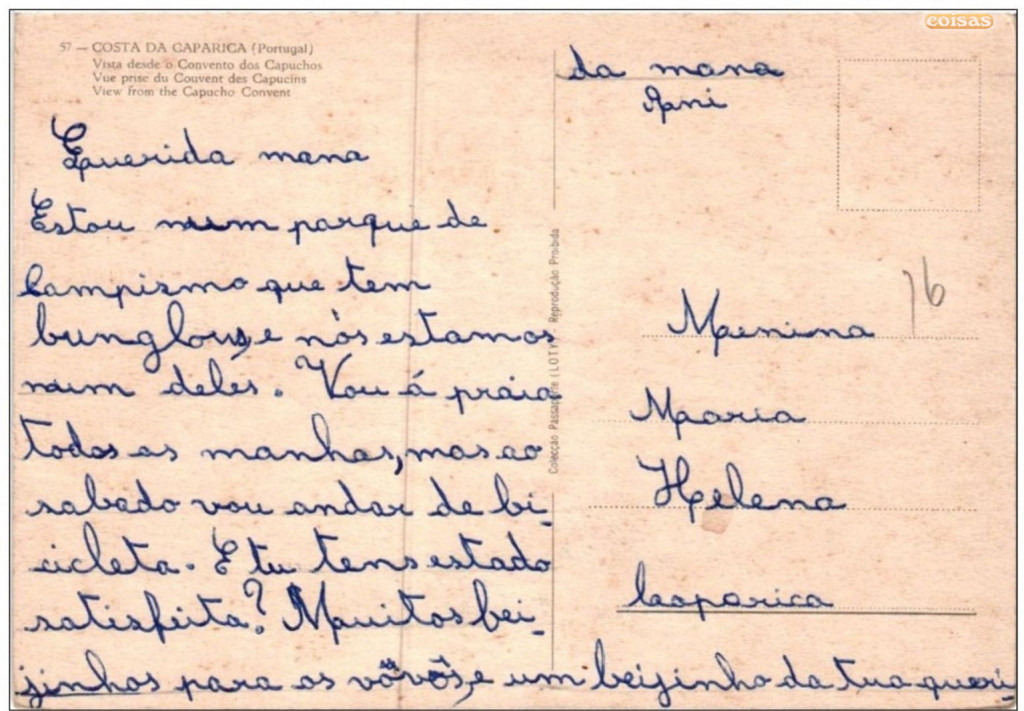 coisas
57 — COSTA DA CAPARICA (Portugal)
Vista desde o Convento dos Capuchos
Vue prise du Couvent des Capucins
View from the Capucho Convent
Querida mana
Estou num parque de
campismo que tem
bunglous, e nós estamos
num deles. Vou á praia
todas as manhas, mas ao
sabado vou andar de bi-
cicleta. E tu tens estado
satisfeita? Muitos bei-
jinhos para os vôvôs, e um beijinho da tua queri-
da mana
Ani
Colecção Passaporte (LOTY) - Reprodução Proibida
16
Menina
Maria
Helena
Caparica